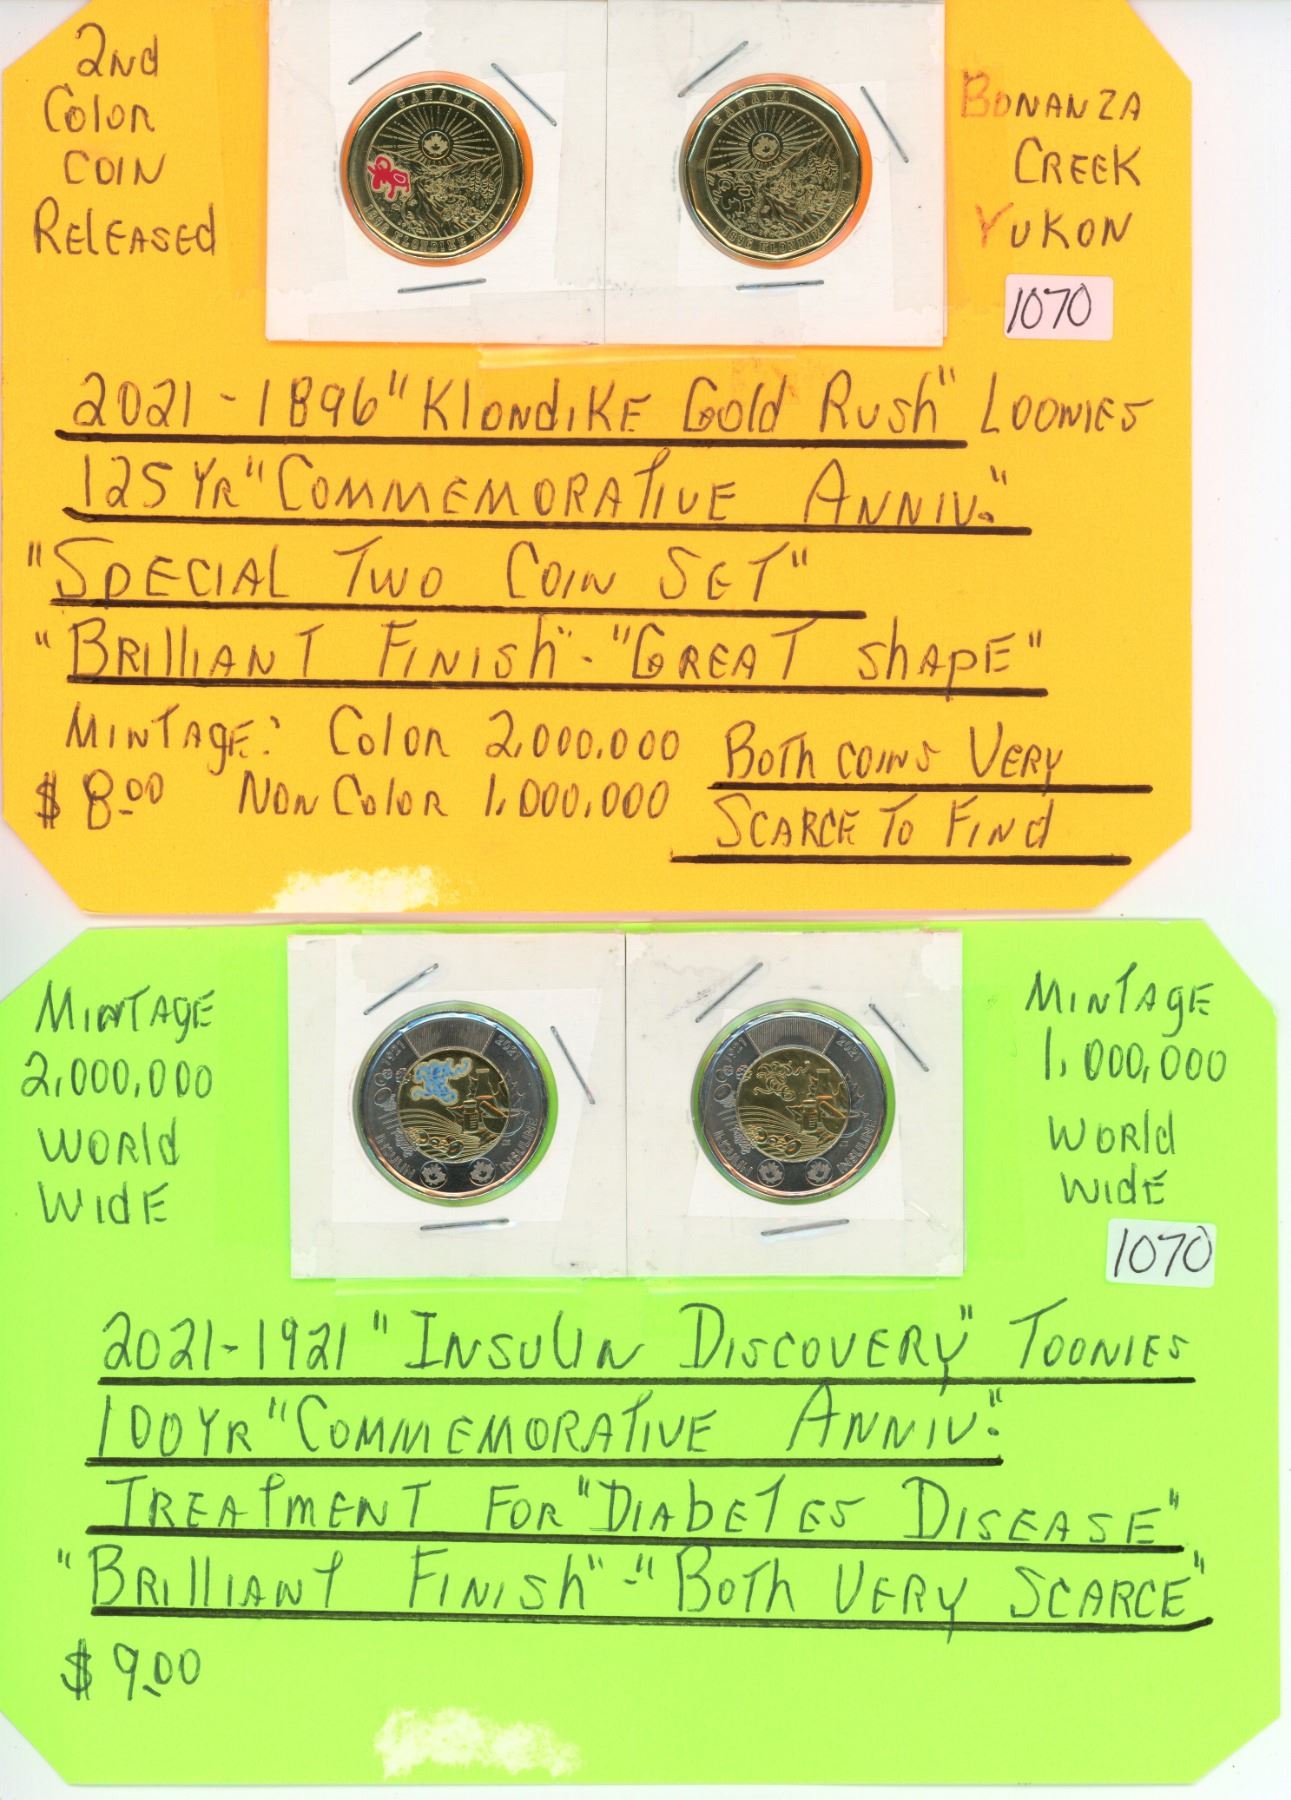 2nd
Color
Coin
Released
CANADA
1896 KLONDIKE 2021
CANADA
1896 KLONDIKE 2021
Bonanza
Creek
Yukon
1070
2021-1896 "Klondike Gold Rush" Loonies
125 Yr "Commemorative Anniv."
"Special Two Coin Set"
"Brilliant Finish" - "Great Shape"
Mintage: Color 2,000,000
$8.00 Non Color 1,000,000
Both coins Very
Scarce To Find
Mintage
2,000,000
World
Wide
1921 2021
INSULIN INSULINE
1921 2021
INSULIN INSULINE
Mintage
1,000,000
World
Wide
1070
2021-1921 "Insulin Discovery" Toonies
100 Yr "Commemorative Anniv."
Treatment For "Diabetes Disease"
"Brilliant Finish" - "Both Very Scarce"
$9.00